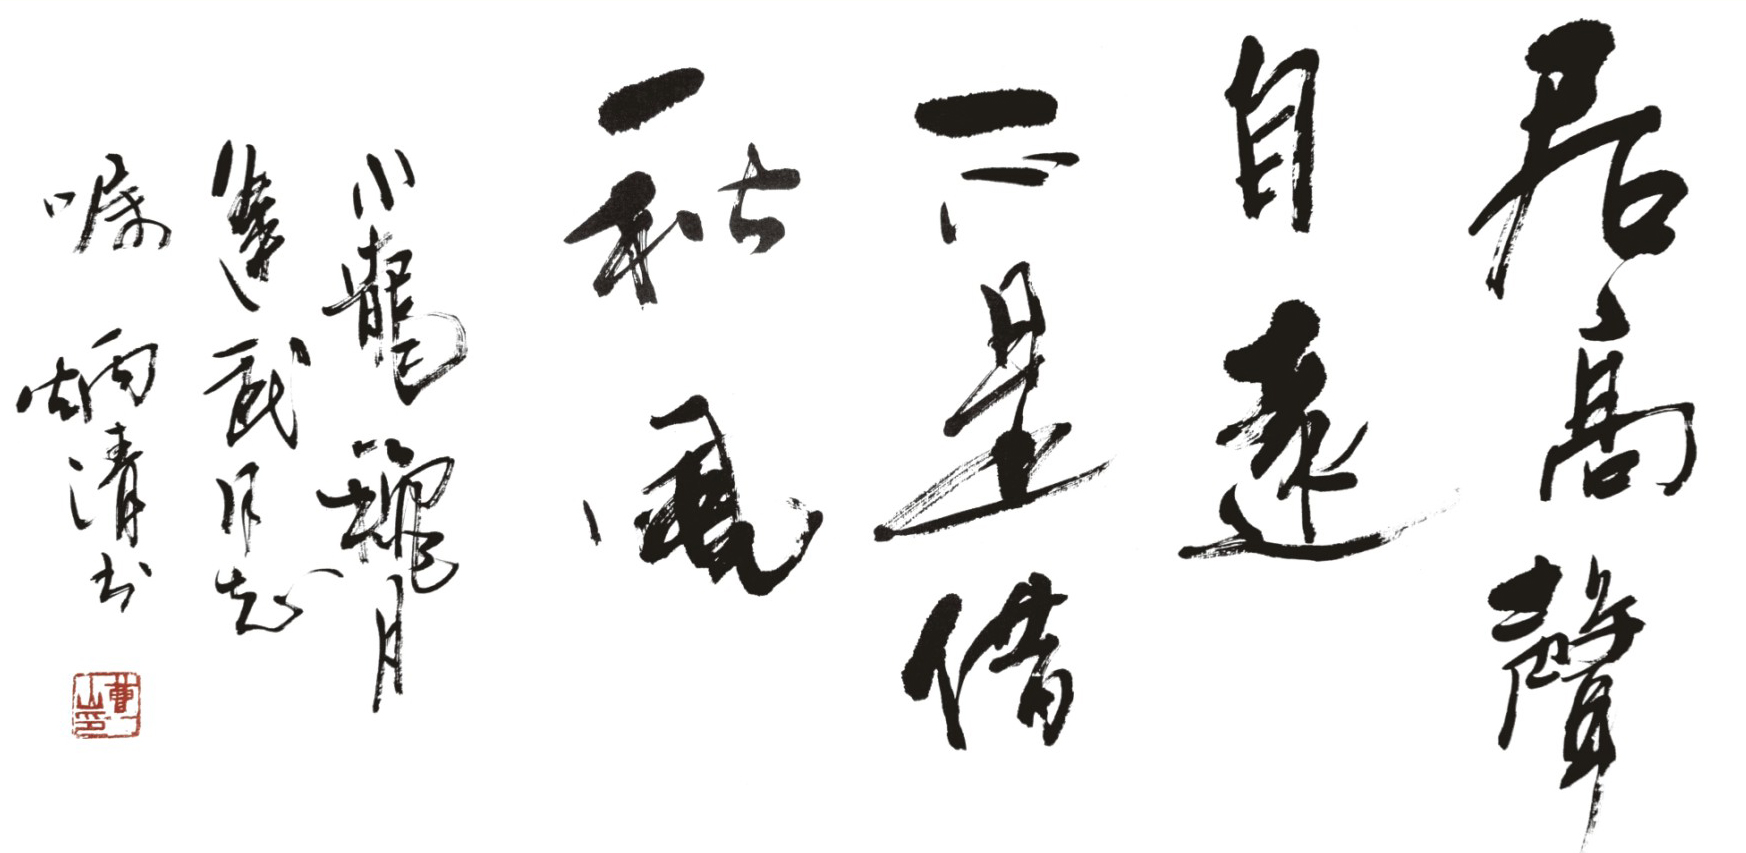 居高聲
自遠
不是借
秋風
小龍龝月
武同志
囑 炳清書